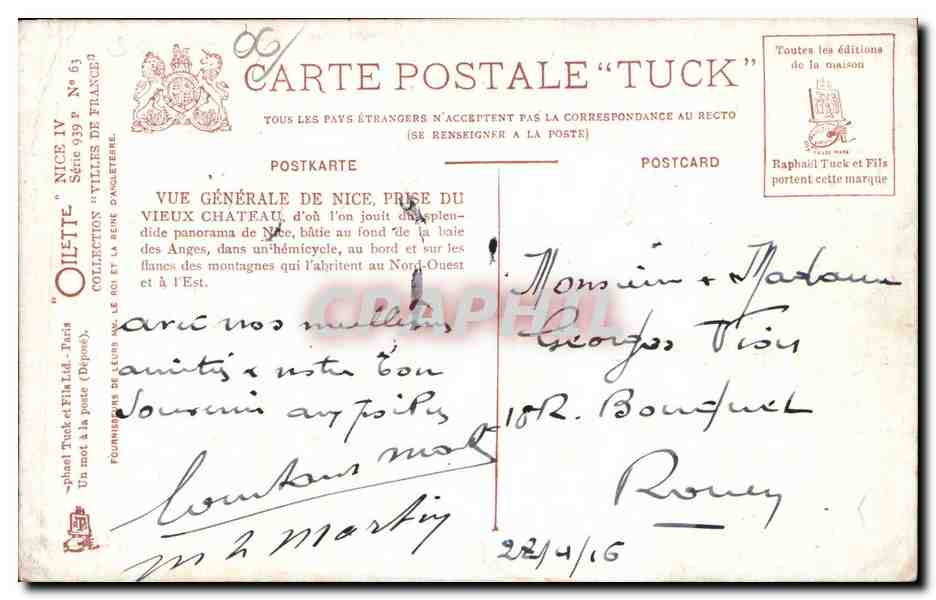 06
CARTE POSTALE "TUCK"
TOUS LES PAYS ÉTRANGERS N'ACCEPTENT PAS LA CORRESPONDANCE AU RECTO
(SE RENSEIGNER A LA POSTE)
POSTKARTE
POSTCARD
Toutes les éditions
de la maison
TRADE MARK
Raphaël Tuck et Fils
portent cette marque
"OILETTE" NICE IV
Série 939 P Nº 63
COLLECTION "VILLES DE FRANCE"
FOURNISSEURS DE LEURS MM. LE ROI ET LA REINE D'ANGLETERRE.
phaël Tuck et Fils Ltd.-Paris
Un mot à la poste (Déposé).
VUE GÉNÉRALE DE NICE, PRISE DU
VIEUX CHATEAU, d'où l'on jouit du splen-
dide panorama de Nice, bâtie au fond de la baie
des Anges, dans un hémicycle, au bord et sur les
flancs des montagnes qui l'abritent au Nord-Ouest
et à l'Est.
CPAPHIL
avec nos meilleurs
amitiés & notre bon
souvenir aux poilus
Martin
Monsieur & Madame
Georges
18 R. Bouquet
Rouen
22/4/16